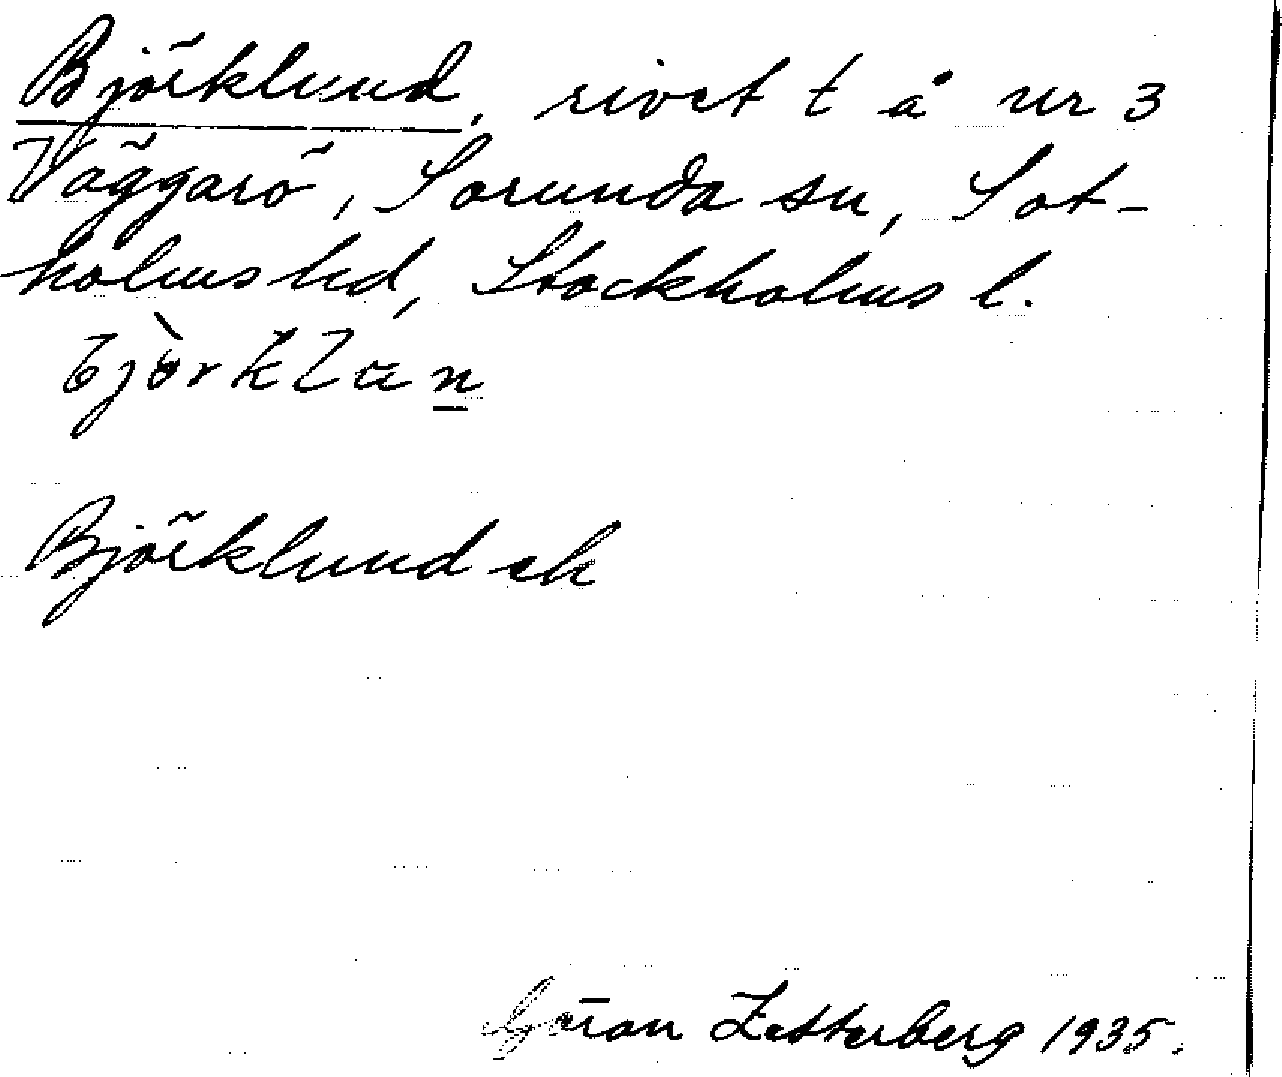 Björklund, rivet t å nr 3
Väggarö, Sorunda sn, Sot-
holms hd, Stockholms l.
bjò̀rklun
Björklund ek
Göran Zetterberg 1935.